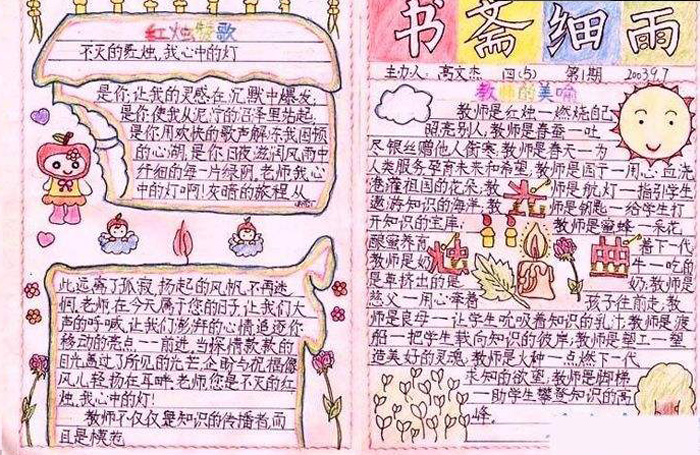 红烛颂歌
不灭的红烛,我心中的灯
是你,让我的灵感在沉默中爆发;
是你,使我从泥泞的沼泽里站起,
是你用欢快的歌声解冻我困顿
的心湖,是你日夜滋润风雨中
纤细的每一片绿荫,老师,我心
中的灯啊!灰暗的旅程从
此远离了孤寂,扬起的风帆,不再迷
惘,老师,在今天属于您的日子,让我们大
声的呐喊,让我们澎湃的心情追逐你
移动的亮点——前进,当深情款款的
目光盖过了所见的光芒,企盼与祝福像
风儿轻扬在耳畔,老师您是不灭的红
烛,我心中的灯!
教师不仅仅是知识的传播者,而
且是模范
书斋细雨
主办人:高文杰 四(5) 第1期 2003.9.7
教师的美喻
教师是红烛—燃烧自己
照亮别人,教师是春蚕—吐
尽银丝赠他人御寒,教师是春天—为
人类服务孕育未来和希望,教师是园丁—用心血浇
灌祖国的花朵,教师是航灯—指引学生
遨游知识的海洋,教师是钥匙—给学生打
开知识的宝库,教师是蜜蜂—采花
酿蜜养育着下一代
教师是奶牛—吃的
是草挤出的是奶,教师是
慈父—用心牵着孩子往前走,教
师是良母—让学生吮吸着知识的乳汁,教师是渡
船—把学生载向知识的彼岸,教师是塑工—塑
造美好的灵魂,教师是火种—点燃下一代
求知的欲望,教师是脚梯
—助学生攀登知识的高
峰.
光
烛
典